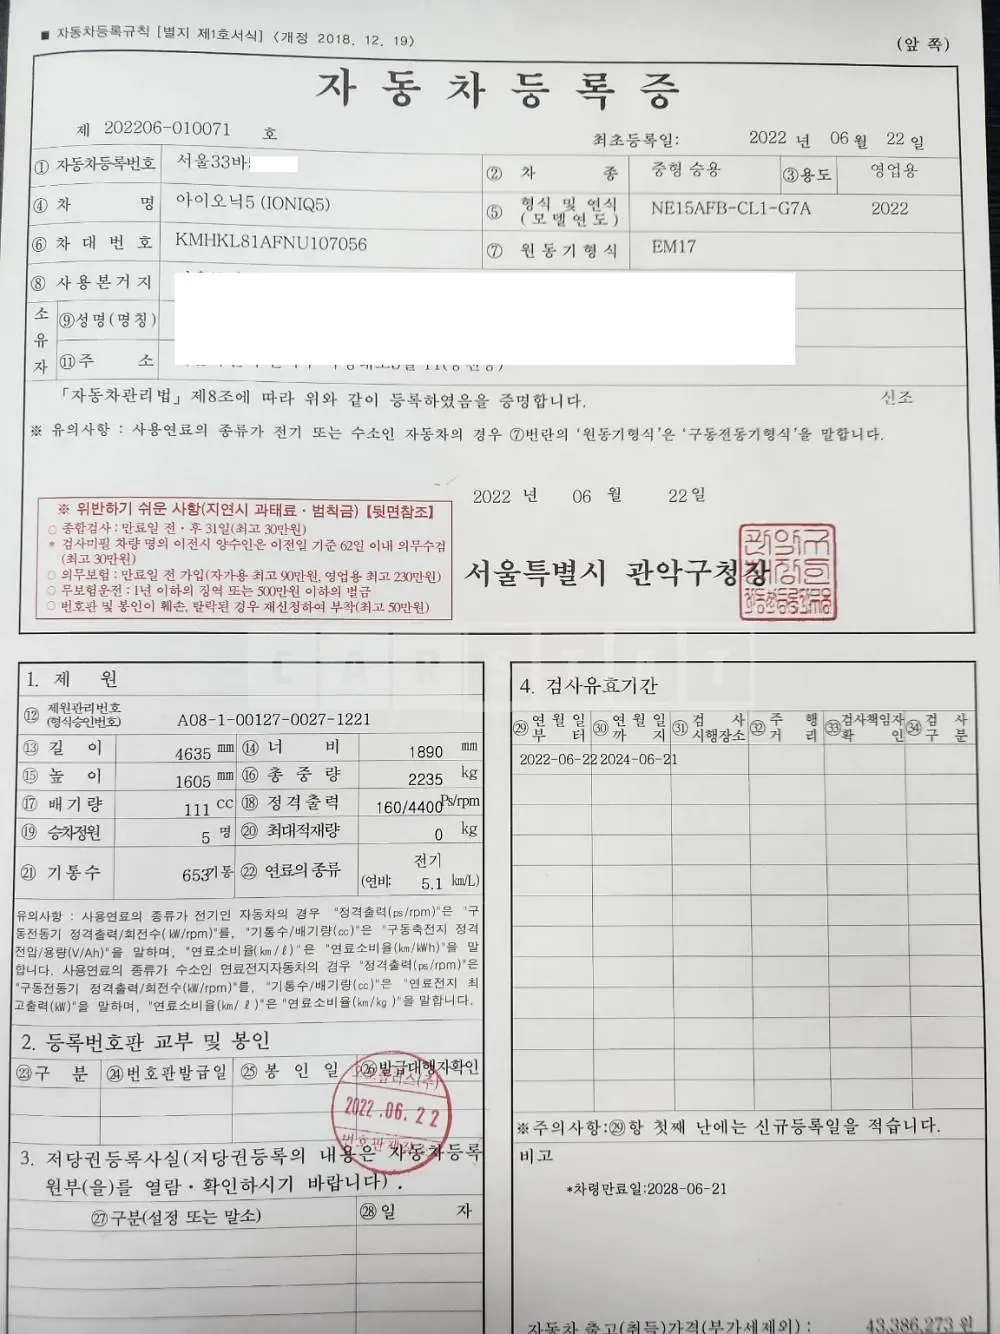 ■ 자동차등록규칙 [별지 제1호서식] <개정 2018. 12. 19>
(앞 쪽)
자 동 차 등 록 증
제 202206-010071 호
최초등록일: 2022 년 06 월 22 일
① 자동차등록번호 서울33바
② 차 종 중형 승용 ③용도 영업용
④ 차 명 아이오닉5 (IONIQ5)
⑤ 형식 및 연식 (모델연도) NE15AFB-CL1-G7A 2022
⑥ 차 대 번 호 KMHKL81AFNU107056
⑦ 원동기형식 EM17
⑧ 사용본거지
소유자
⑨성명(명칭)
⑪주 소
「자동차관리법」 제8조에 따라 위와 같이 등록하였음을 증명합니다. 신조
※ 유의사항 : 사용연료의 종류가 전기 또는 수소인 자동차의 경우 ⑦번란의 '원동기형식'은 '구동전동기형식'을 말합니다.
2022 년 06 월 22일
※ 위반하기 쉬운 사항(지연시 과태료·범칙금)【뒷면참조】
○ 종합검사 : 만료일 전·후 31일(최고 30만원)
* 검사미필 차량 명의 이전시 양수인은 이전일 기준 62일 이내 의무수검
(최고 30만원)
○ 의무보험 : 만료일 전 가입(자가용 최고 90만원, 영업용 최고 230만원)
○ 무보험운전 : 1년 이하의 징역 또는 500만원 이하의 벌금
○ 번호판 및 봉인이 훼손, 탈락된 경우 재신청하여 부착(최고 50만원)
서울특별시 관악구청장
CARSTAT
1. 제 원
⑫ 제원관리번호 (형식승인번호) A08-1-00127-0027-1221
⑬ 길 이 4635 mm ⑭ 너 비 1890 mm
⑮ 높 이 1605 mm ⑯ 총 중 량 2235 kg
⑰ 배기량 111 cc ⑱ 정격출력 160/4400 Ps/rpm
⑲ 승차정원 5 명 ⑳ 최대적재량 0 kg
㉑ 기통수 653 기통 ㉒ 연료의 종류 전기
(연비: 5.1 km/L)
유의사항 : 사용연료의 종류가 전기인 자동차의 경우 "정격출력(ps/rpm)"은 "구
동전동기 정격출력/회전수(kW/rpm)"를, "기통수/배기량(cc)"은 "구동축전지 정격
전압/용량(V/Ah)"을 말하며, "연료소비율(km/ℓ)"은 "연료소비율(km/kWh)"을 말
합니다. 사용연료의 종류가 수소인 연료전지자동차의 경우 "정격출력(ps/rpm)"은
"구동전동기 정격출력/회전수(kW/rpm)"를, "기통수/배기량(cc)"은 "연료전지 최
고출력(kW)"을 말하며, "연료소비율(km/ℓ)"은 "연료소비율(km/kg)"을 말합니다.
2. 등록번호판 교부 및 봉인
㉓구 분 ㉔번호판발급일 ㉕봉 인 일 ㉖발급대행자확인
2022.06.22
3. 저당권등록사실(저당권등록의 내용은 자동차등록
원부(을)를 열람·확인하시기 바랍니다).
㉗구분(설정 또는 말소) ㉘일 자
4. 검사유효기간
㉙ 연 월 일 부 터 ㉚ 연 월 일 까 지 ㉛ 검 사 시행장소 ㉜ 주 행 거 리 ㉝ 검사책임자 확 인 ㉞ 검 사 구 분
2022-06-22 2024-06-21
※주의사항:㉙항 첫째 난에는 신규등록일을 적습니다.
비고
*차령만료일:2028-06-21
자동차 출고(취득)가격(부가세제외) : 43,386,273 원